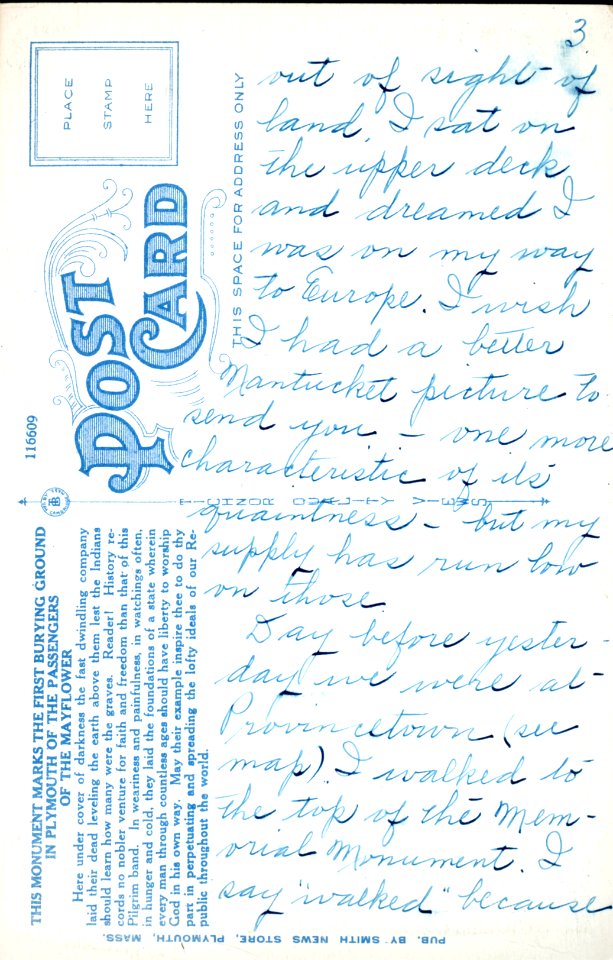 3
out of sight of
land, I sat on
the upper deck
and dreamed I
was on my way
to Europe. I wish
I had a better
Nantucket picture to
send you – one more
characteristic of its
quaintness – but my
supply has run low
on those.
Day before yester-
day we were at
Provincetown (see
map). I walked to
the top of the Mem-
orial Monument. I
say "walked" because
PLACE
STAMP
HERE
POST
CARD
THIS SPACE FOR ADDRESS ONLY
116609
TICHNOR QUALITY VIEWS
THIS MONUMENT MARKS THE FIRST BURYING GROUND
IN PLYMOUTH OF THE PASSENGERS
OF THE MAYFLOWER
Here under cover of darkness the fast dwindling company
laid their dead leveling the earth above them lest the Indians
should learn how many were the graves. Reader! History re-
cords no nobler venture for faith and freedom than that of this
Pilgrim band. In weariness and painfulness, in watchings often,
in hunger and cold, they laid the foundations of a state wherein
every man through countless ages should have liberty to worship
God in his own way. May their example inspire thee to do thy
part in perpetuating and spreading the lofty ideals of our Re-
public throughout the world.
PUB. BY SMITH NEWS STORE, PLYMOUTH, MASS.